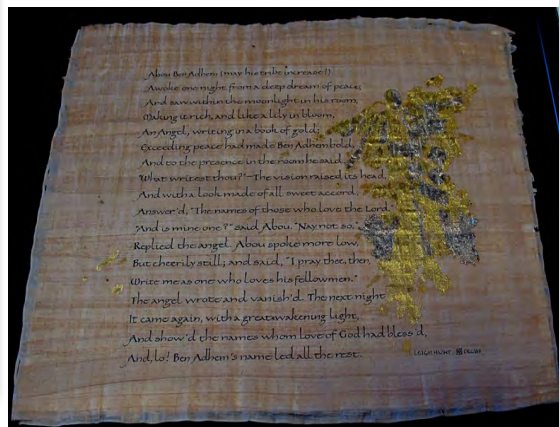 Abou Ben Adhem (may his tribe increase!)
Awoke one night from a deep dream of peace,
And saw within the moonlight in his room,
Making it rich, and like a lily in bloom,
An Angel, writing in a book of gold;
Exceeding peace had made Ben Adhem bold,
And to the presence in the room he said,
"What writest thou?"-The vision raised its head,
And with a look made of all sweet accord,
Answer'd, "The names of those who love the Lord."
"And is mine one?" said Abou. "Nay not so,"
Replied the angel. Abou spoke more low,
But cheerily still; and said, "I pray thee, then,
Write me as one who loves his fellowmen."
The angel wrote and vanish'd. The next night
It came again, with a great wakening light,
And show'd the names whom love of God had bless'd,
And, lo! Ben Adhem's name led all the rest.
LEIGH HUNT